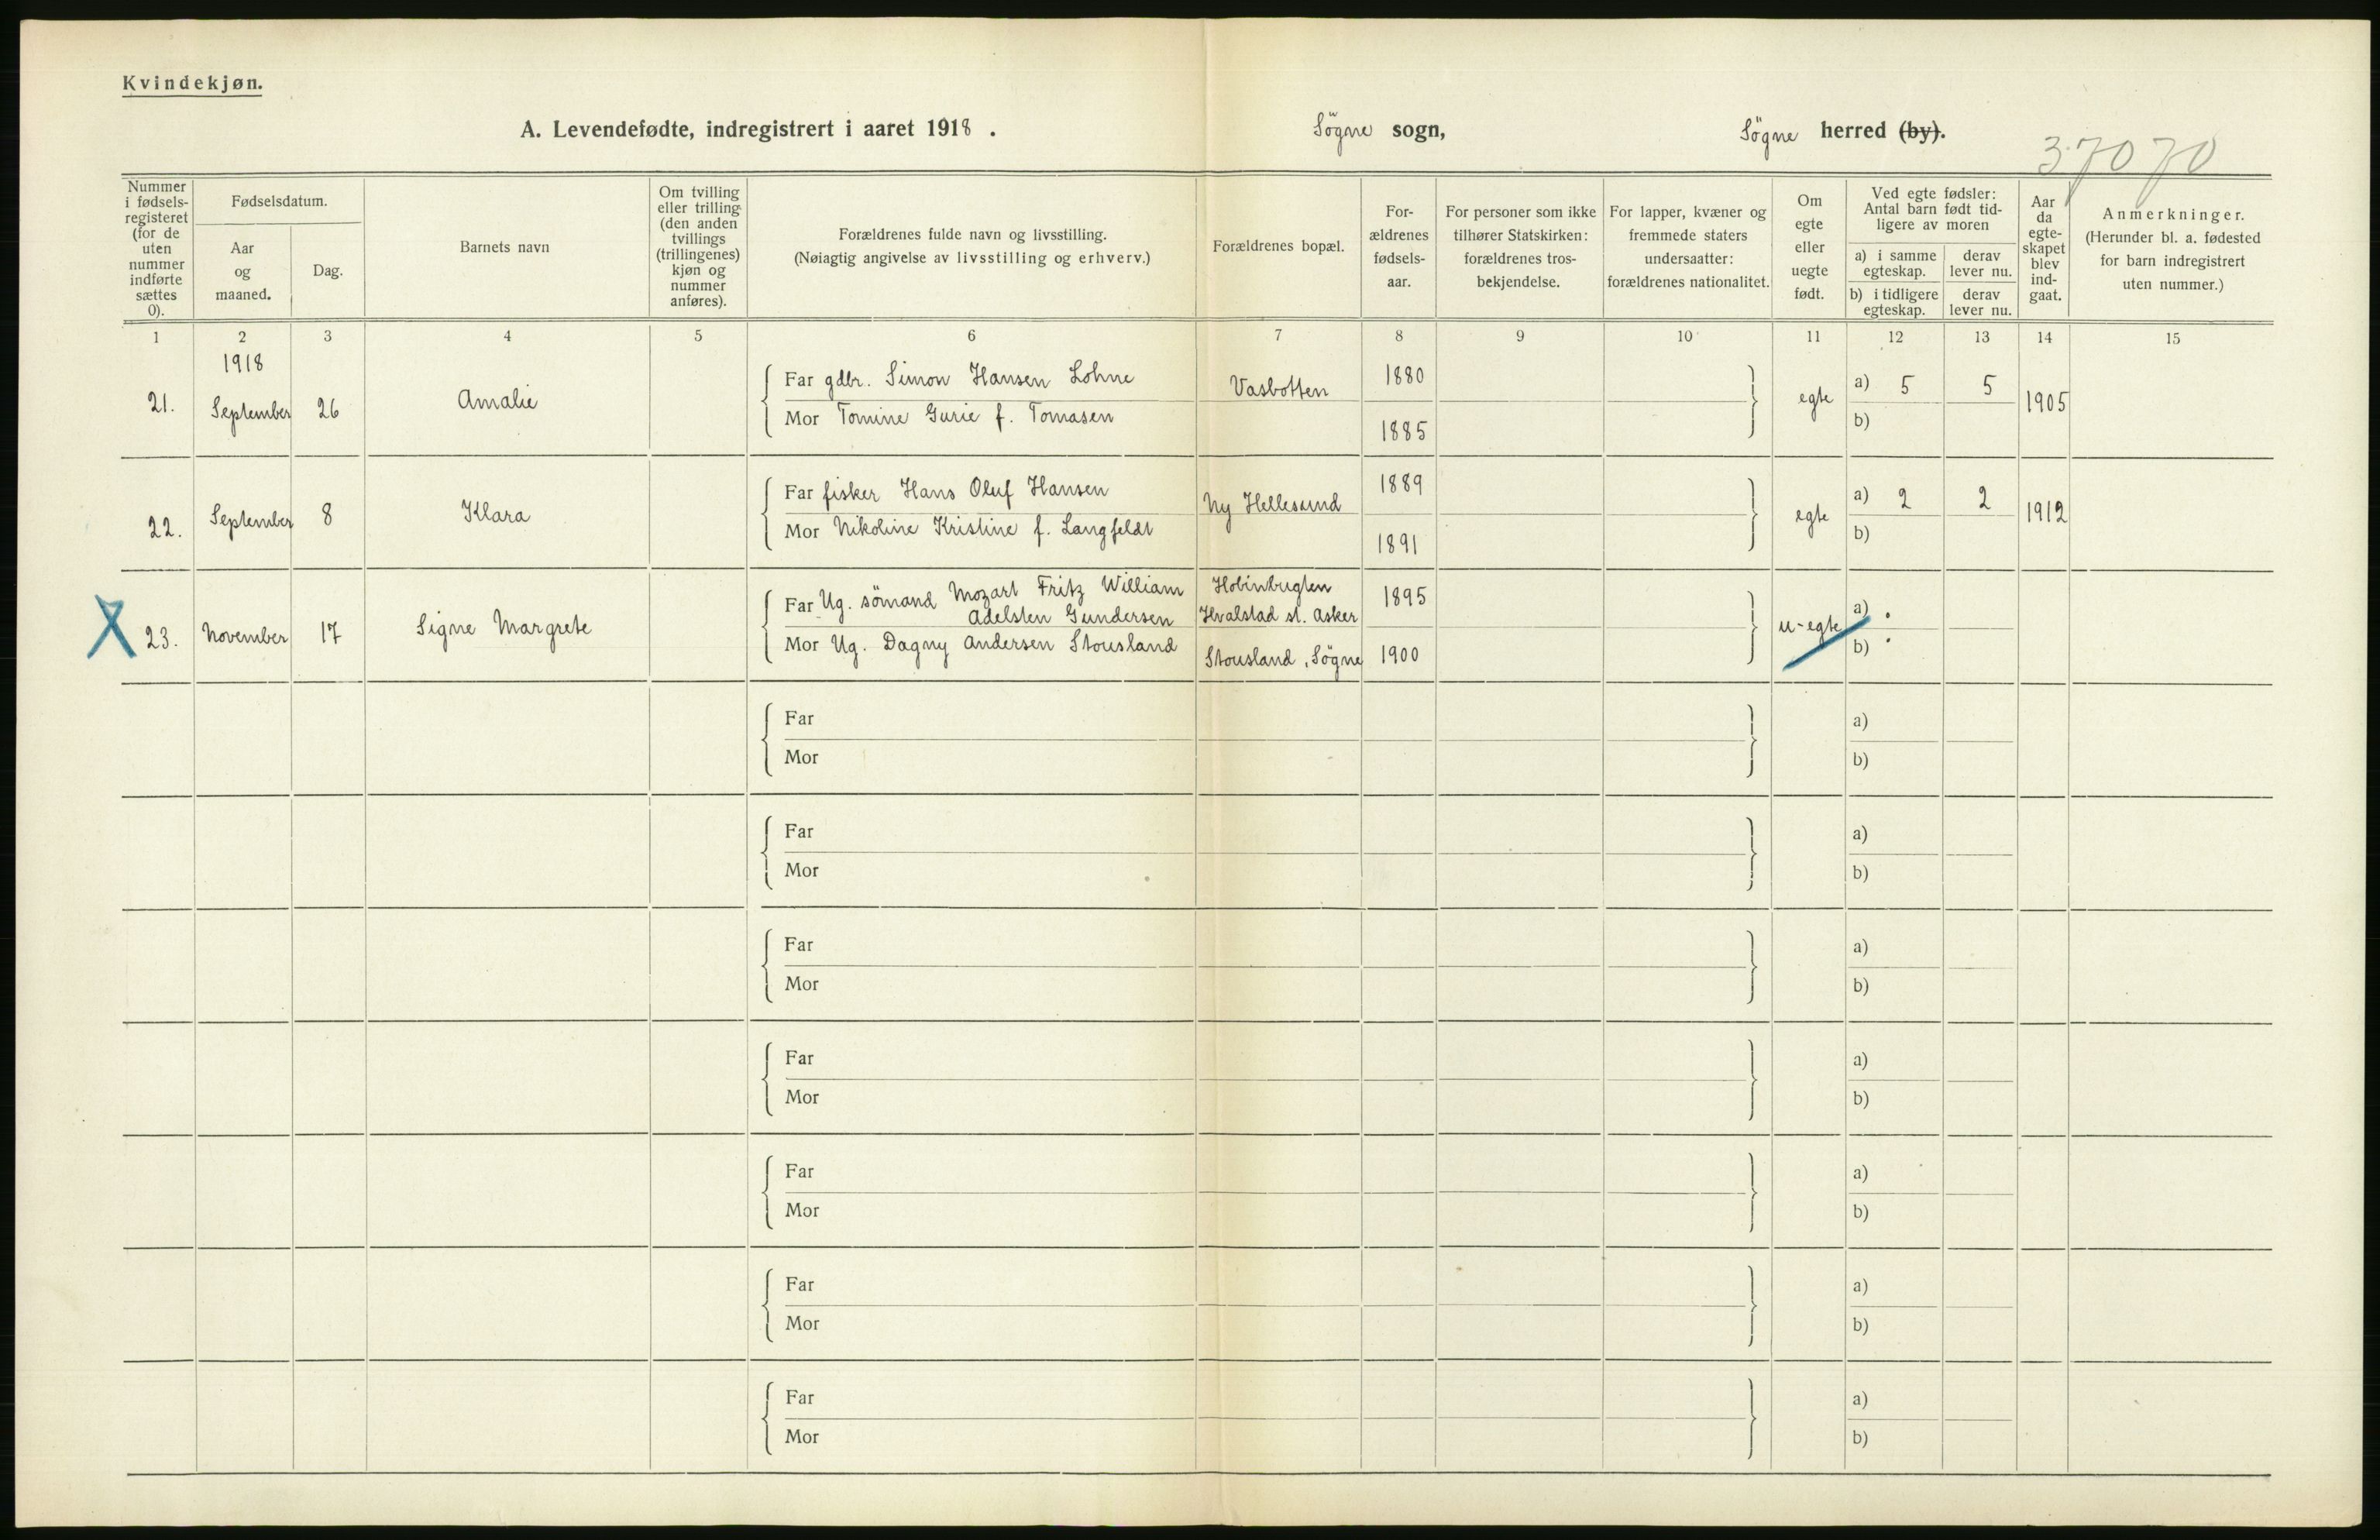 Kvindekjøn.
A. Levendefødte, indregistrert i aaret 1918 . Søgne sogn, Søgne herred (by).
37070
Nummer i fødsels-registeret (for de uten nummer indførte sættes 0).
Fødselsdatum.
Aar og maaned.
Dag.
Barnets navn
Om tvilling eller trilling (den anden tvillings (trillingenes) kjøn og nummer anføres).
Forældrenes fulde navn og livsstilling.
(Nøiagtig angivelse av livsstilling og erhverv.)
Forældrenes bopæl.
For-ældrenes fødsels-aar.
For personer som ikke tilhører Statskirken: forældrenes tros-bekjendelse.
For lapper, kvæner og fremmede staters undersaatter: forældrenes nationalitet.
Om egte eller uegte født.
Ved egte fødsler: Antal barn født tid-ligere av moren
a) i samme egteskap.
derav lever nu.
b) i tidligere egteskap.
derav lever nu.
Aar da egte-skapet blev ind-gaat.
Anmerkninger.
(Herunder bl. a. fødested for barn indregistrert uten nummer.)
1 2 3 4 5 6 7 8 9 10 11 12 13 14 15
1918
21. September 26 Amalie
Far gdbr. Simon Hansen Lohne Vasbotten 1880 egte a) 5 5 1905
Mor Tomine Gurie f. Tomasen 1885 b)
22. September 8 Klara
Far fisker Hans Oluf Hansen Ny Hellesund 1889 egte a) 2 2 1912
Mor Nikoline Kristine f. Langfeldt 1891 b)
X 23. November 17 Signe Margrete
Far Ug. sömand Mozart Fritz William Adelsten Gundersen Hvalstad st. Asker 1895 u-egte a)
Mor Ug. Dagny Andersen Stousland Stousland, Søgne 1900 b)
Far a)
Mor b)
Far a)
Mor b)
Far a)
Mor b)
Far a)
Mor b)
Far a)
Mor b)
Far a)
Mor b)
Far a)
Mor b)